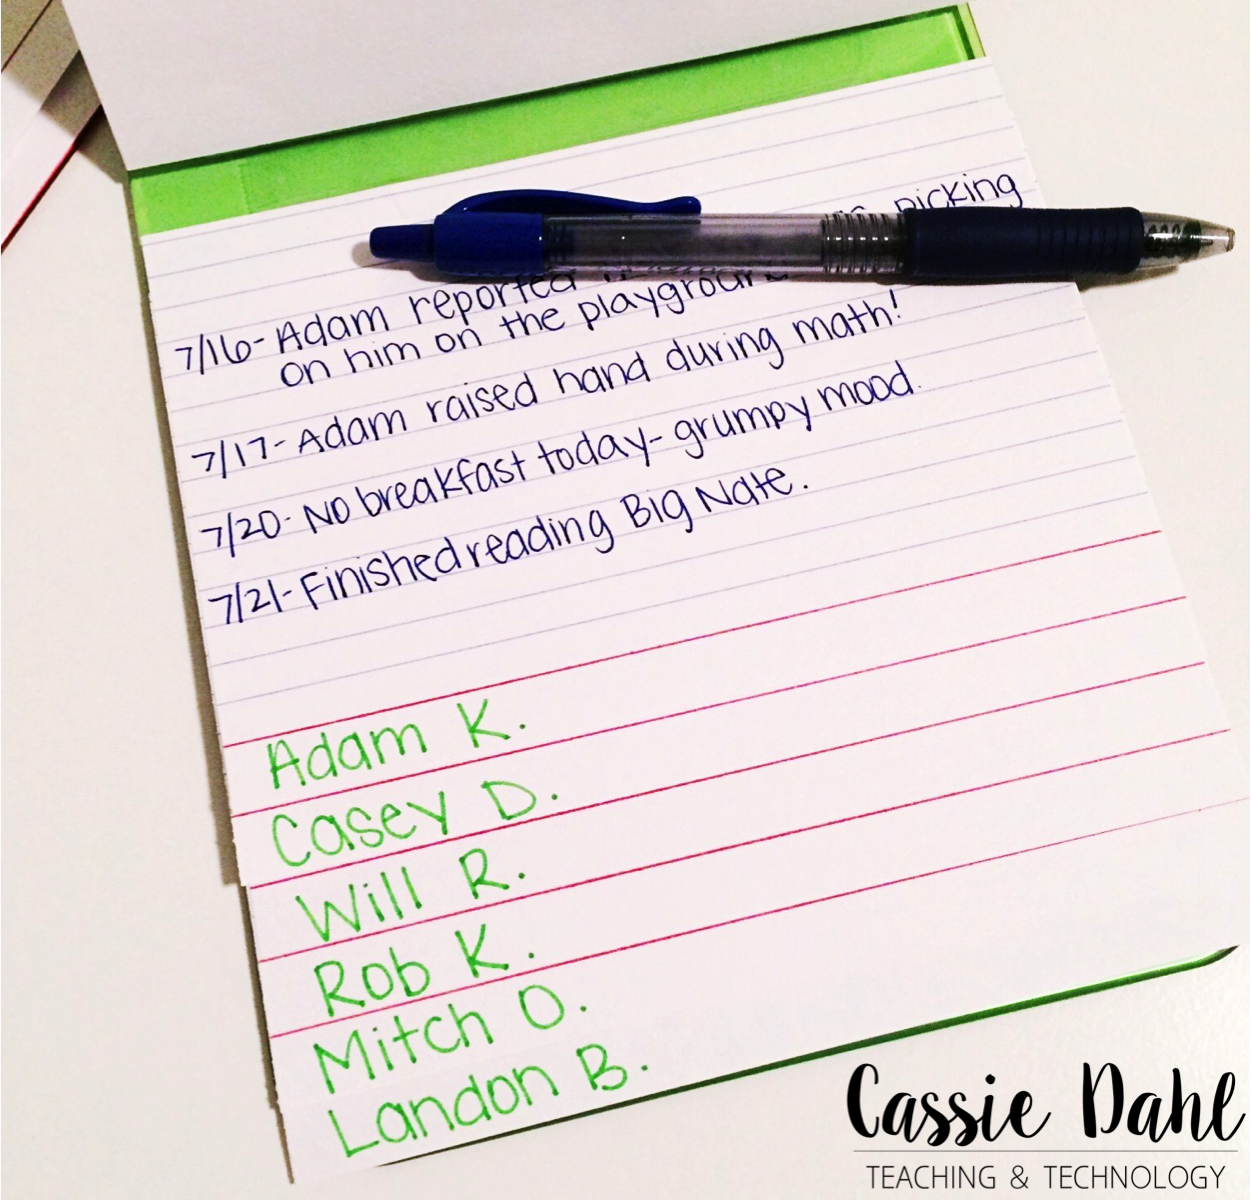 7/16- Adam reported picking
on him on the playground
7/17- Adam raised hand during math!
7/20- No breakfast today- grumpy mood.
7/21- Finished reading Big Nate.
Adam K.
Casey D.
Will R.
Rob K.
Mitch O.
Landon B.
Cassie Dahl
TEACHING & TECHNOLOGY